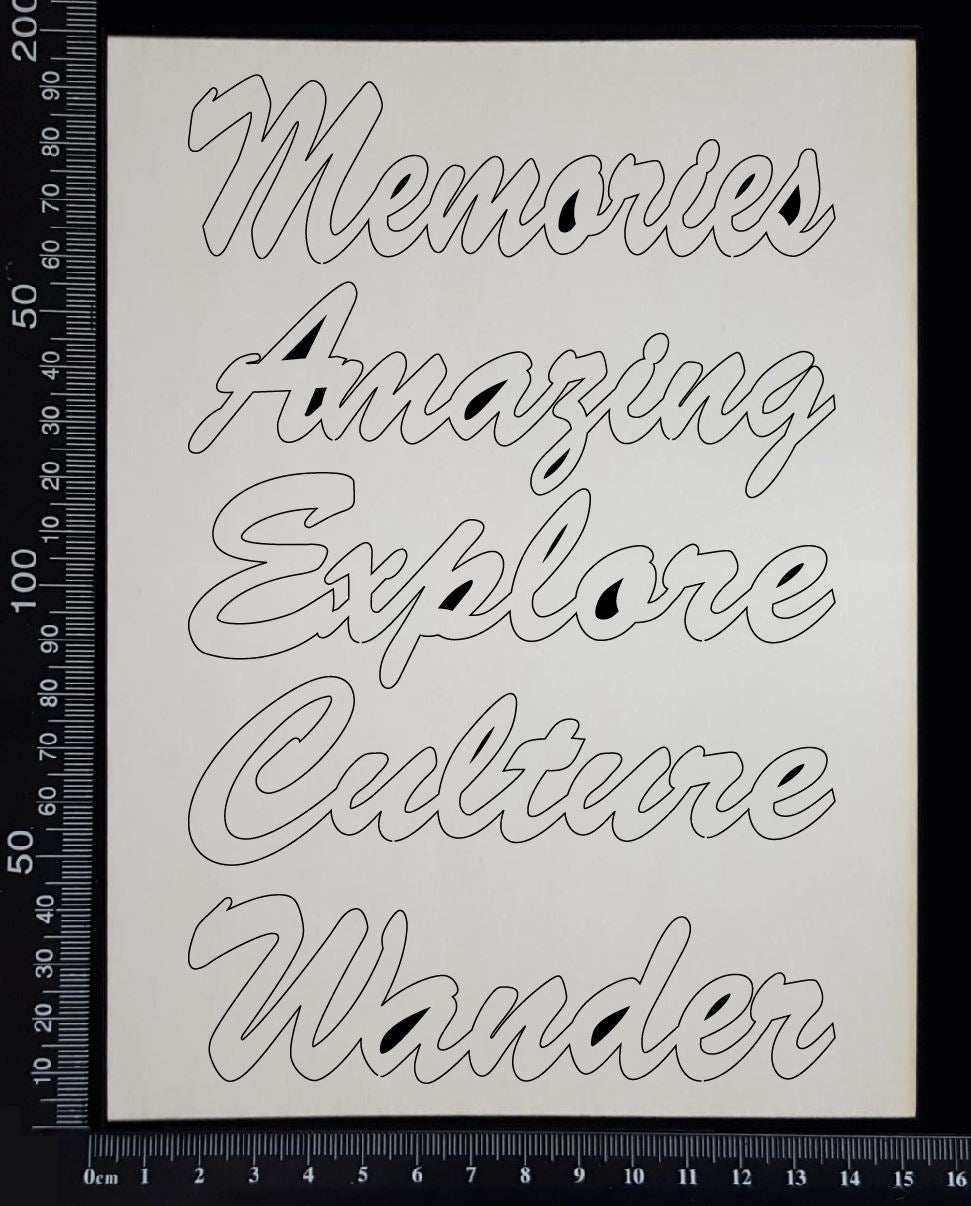 Memories
Amazing
Explore
Culture
Wander
200
90
80
70
60
50
40
30
20
10
100
90
80
70
60
50
40
30
20
10
0cm 1 2 3 4 5 6 7 8 9 10 11 12 13 14 15 16